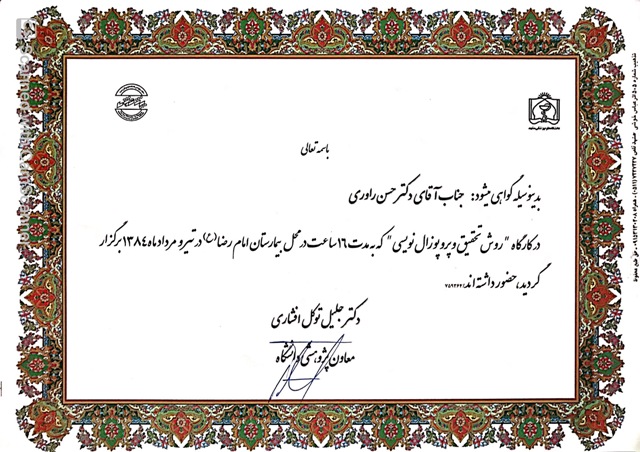 باسمه تعالی
بدینوسیله گواهی میشود: جناب آقای دکتر حسن راوری
در کارگاه "روش تحقیق و پروپوزال نویسی" که به مدت ۱۶ ساعت در محل بیمارستان امام رضا (ع) در تیر و مرداد ماه ۱۳۸٤ برگزار
گردید، حضور داشته اند.
دکتر جلیل توکل افشاری
معاون پژوهشی دانشگاه